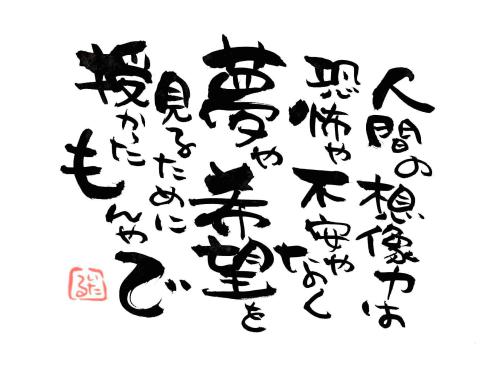 人間の想像力は
恐怖や不安や
なく
夢や希望を
見るために
授かった
もんやで
いたる